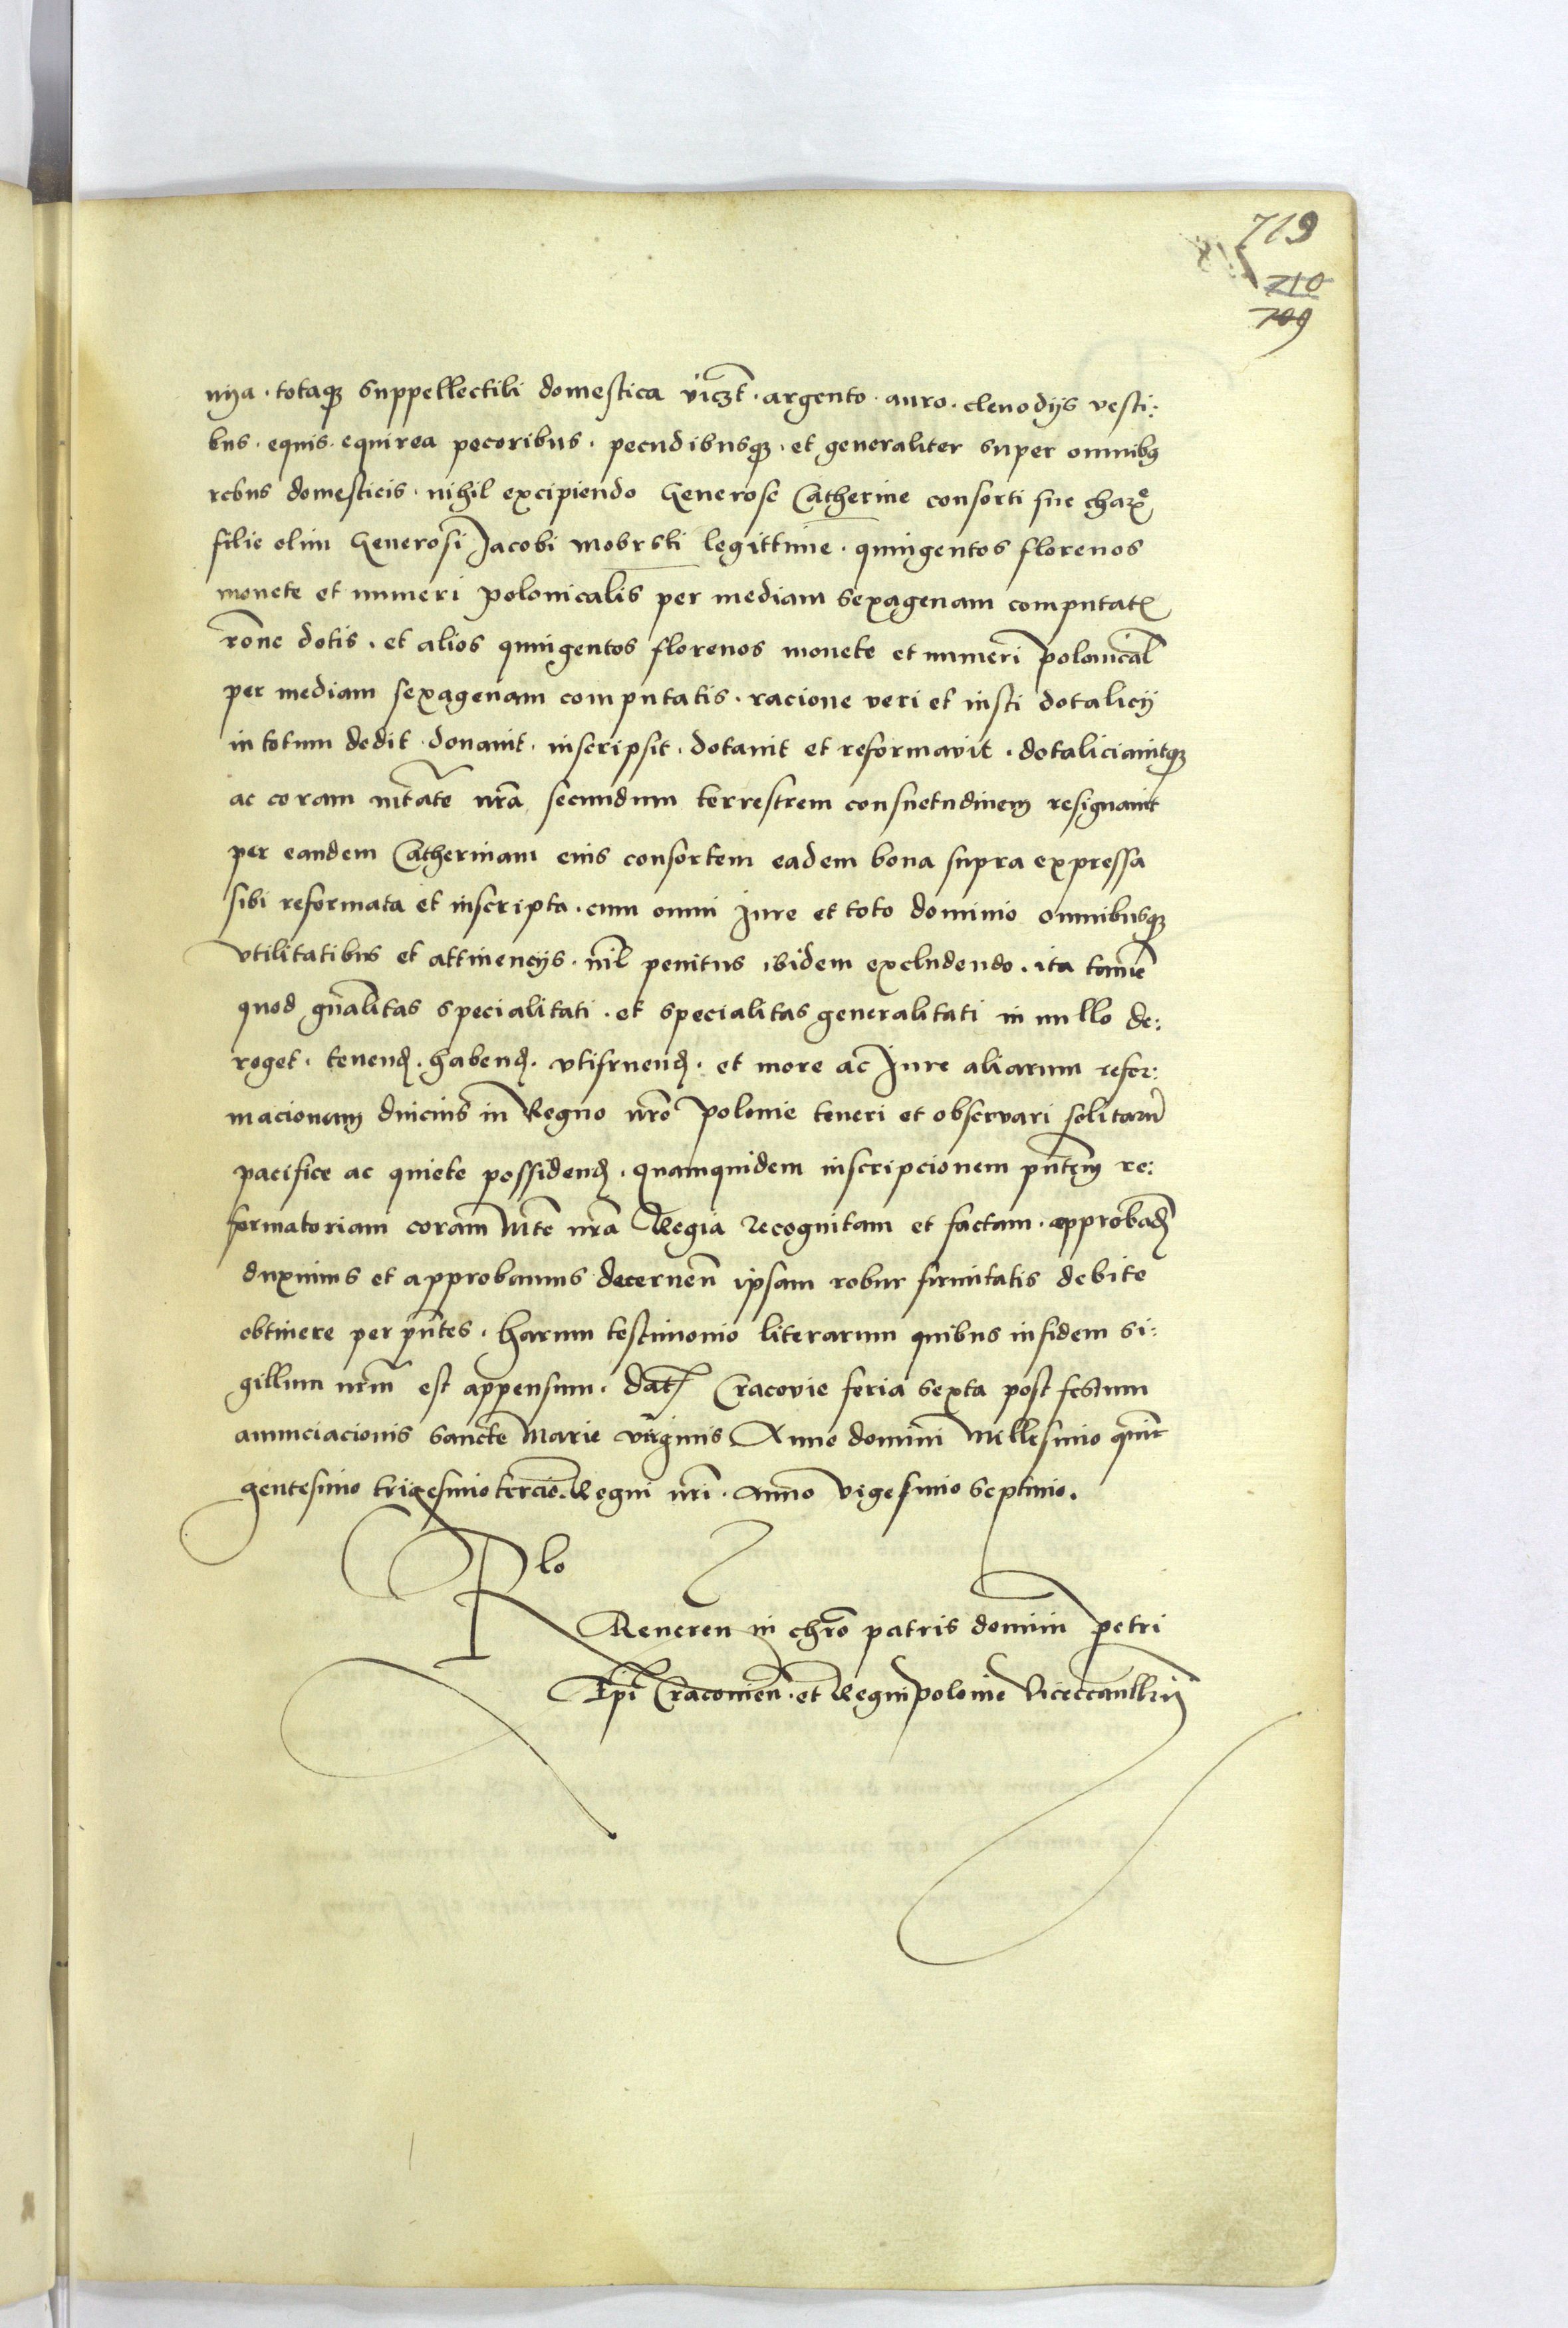 719
710
709
nya · totaq₃ suppellectili domestica vicz̃t · argento · auro · clenodijs vesti:
bus · equis · equirea pecoribus · pecudibusq₃ · et generaliter super omnibꝯ
rebus domesticis · nihil excipiendo Generose Catherine consorti sue chariss̃
filie olim Generosi Jacobi Mobrsti legittime · quingentos florenos
monete et numeri polonicalis per mediam sexagenam computatꝭ
rõne dotis · et alios quingentos florenos monete et numeri polonical̃
per mediam sexagenam computatis · racione veri et iusti dotalicij
in totum dedit · donauit · inscripsit · dotauit et reformavit · dotaliciauitq₃
ac coram mtãte nrã secundum terrestrem consuetudinem resignauit
per eandem Catherinam eius consortem eadem bona supra expressa
sibi reformata et inscripta · cum omni Jure et toto dominio omnibusq₃
vtilitatibus et attinencijs · nil̃ penitus ibidem excludendo · ita tamẽ
quod gñalitas specialitati · et specialitas generalitati in nullo de:
roget · tenenḍ · habenḍ · vtifruenḍ · et more ac Jure aliarum refor:
macionum duicius in Regno nrõ polonie teneri et observari solitarũ
pacifice ac quiete possidenḍ · quamquidem inscripcionem pñtem re:
formatoriam coram Mte nrã Regia recognitam et factam · approbanḍ
duximus et approbamus decernen̄ ipsam robur firmitatis debite
obtinere per pñtes · harum testimonio literarum quibus in fidem si:
gillum nrm̃ est appensum · Datꝭ Cracovie feria sexta post festum
anunciacionis sancte Marie virginis Anno domini Millesimo quin̄
gentesimo trigesimo tercio · Regni nrĩ · anno vigesimo septimo .
Rlo
Reueren̄ in chrõ patris domini petri
Epĩ Cracouien̄ · et Regni polonie vicecancllrij